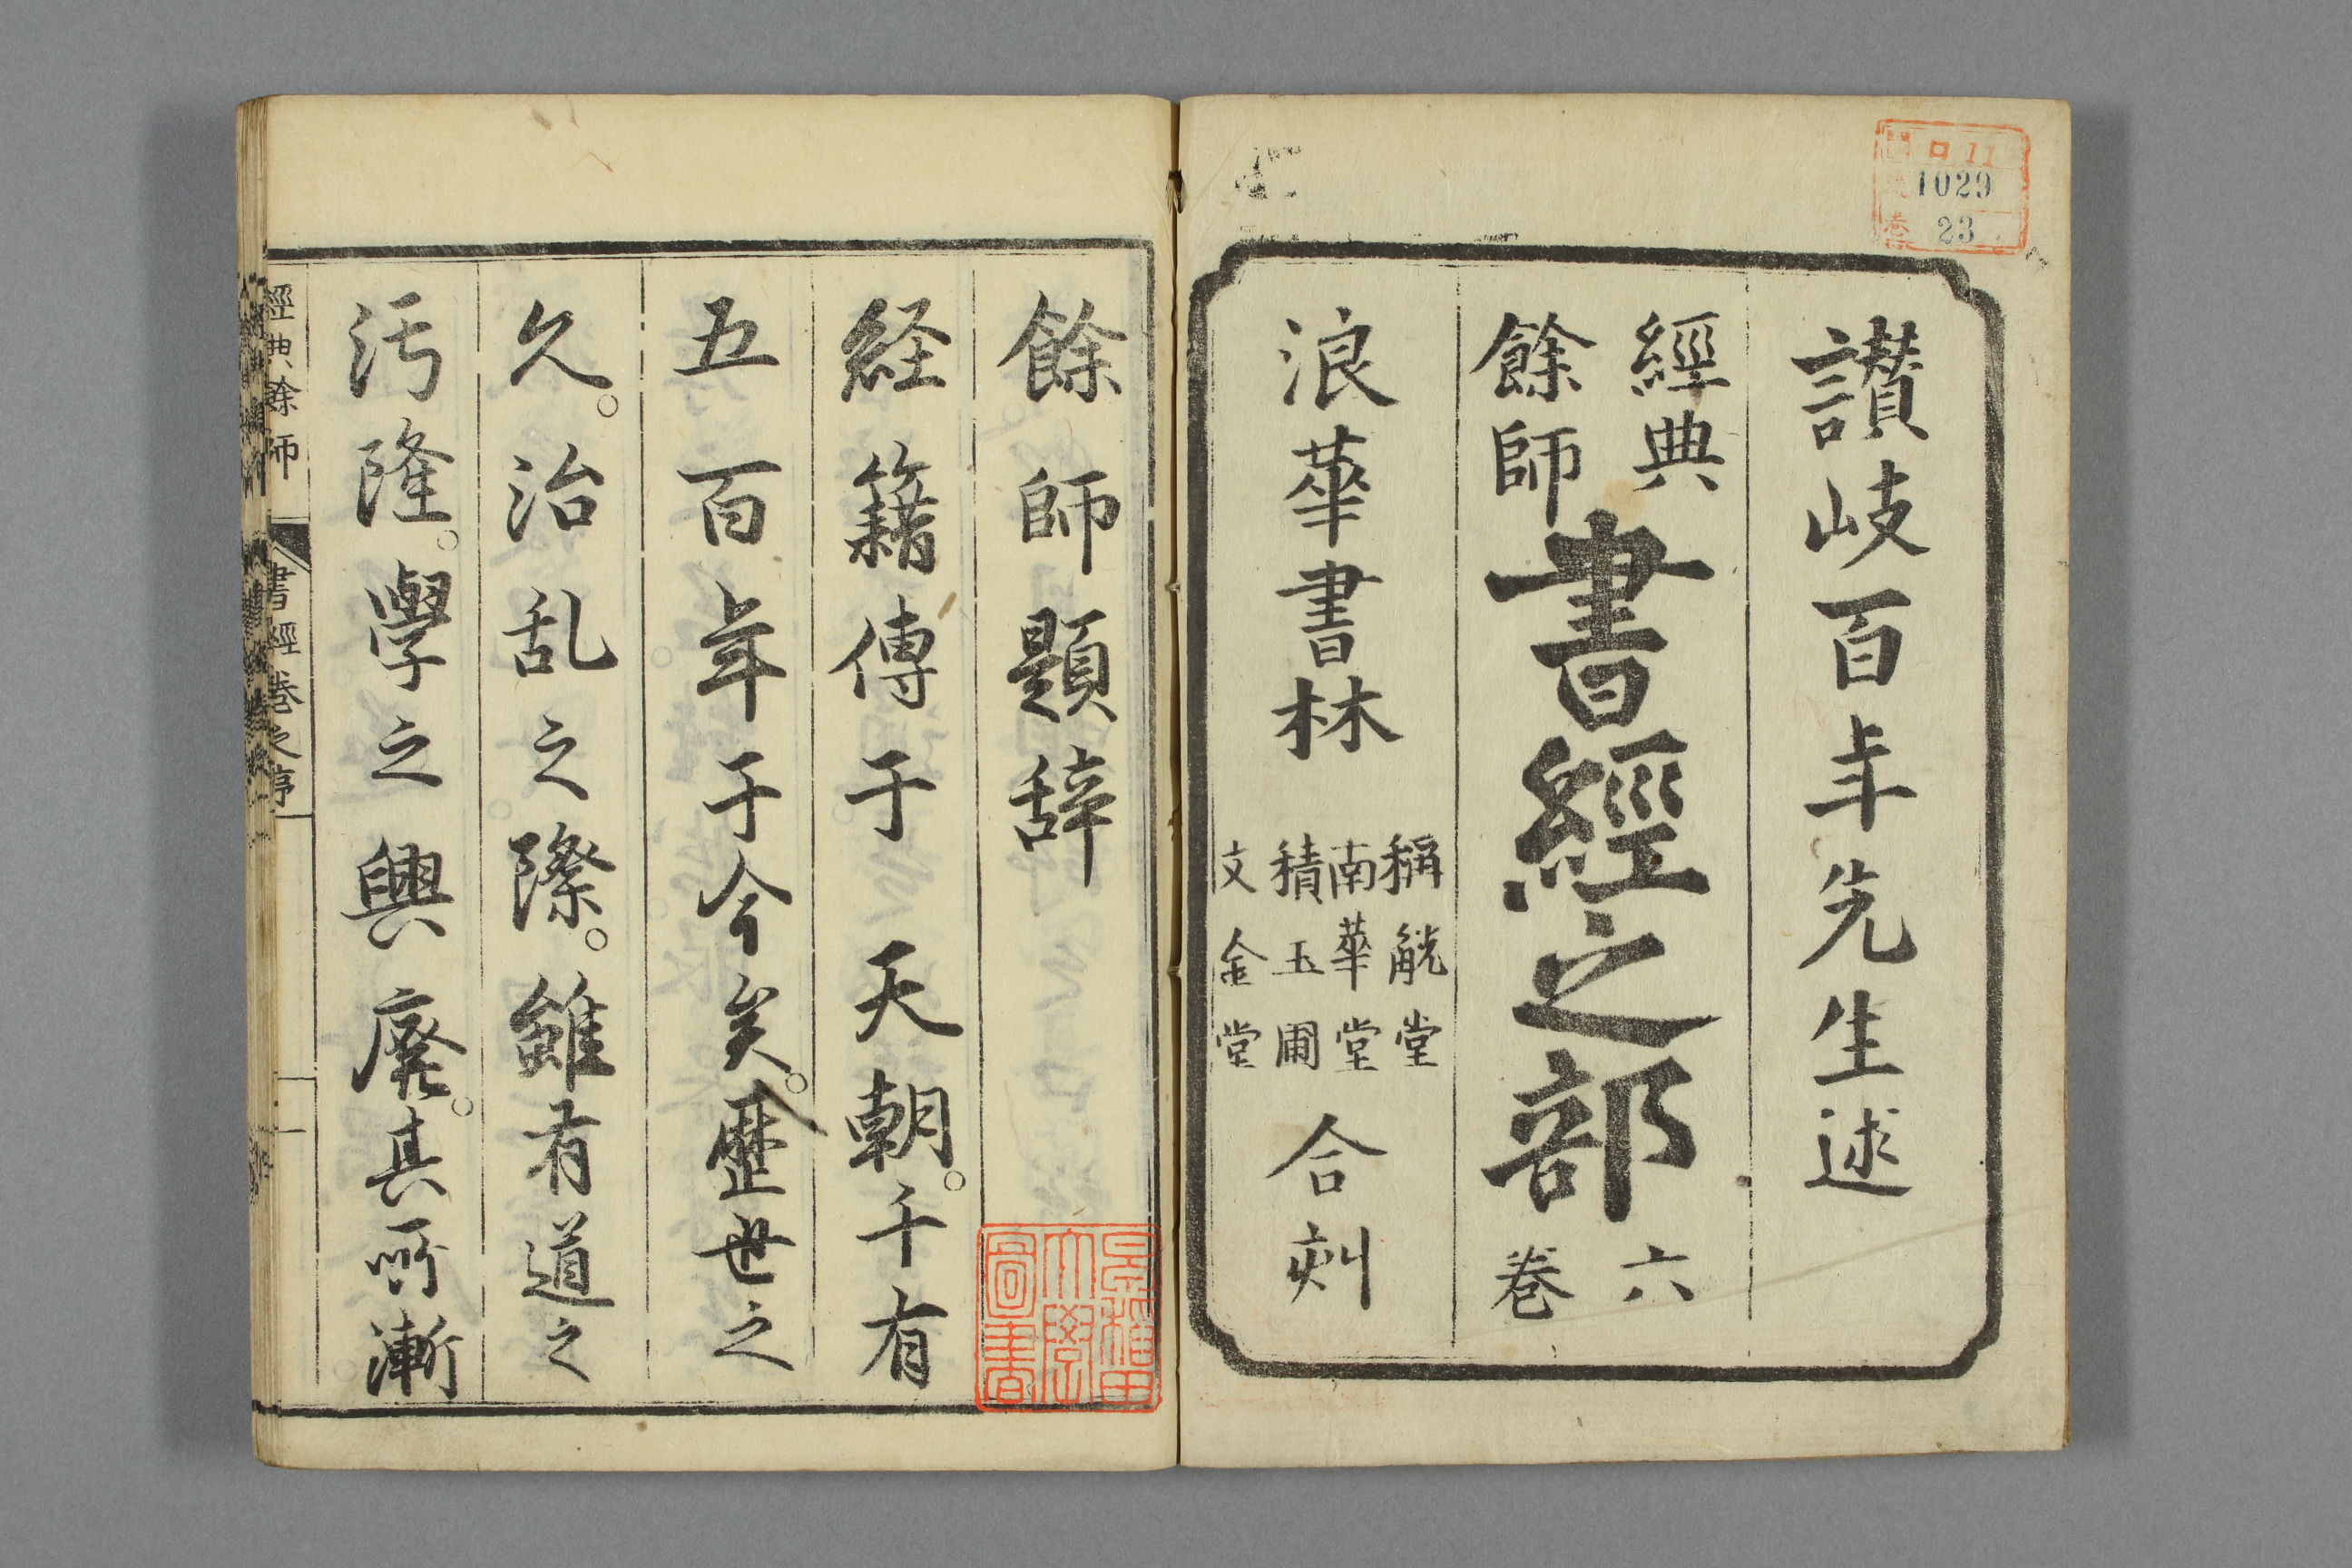 ロ11
1029
23
讃岐百年先生述
經典
餘師
書經之部
六
巻
浪華書林
稱觥堂
南華堂
積玉圃
文金堂
合刻
餘師題辞
経籍傳于天朝。千有
五百年于今矣。歴世之
久。治乱之際。雖有道之
汚隆。學之興廃。其所漸
經典餘師
書經巻之序
早稲田
大學
圖書